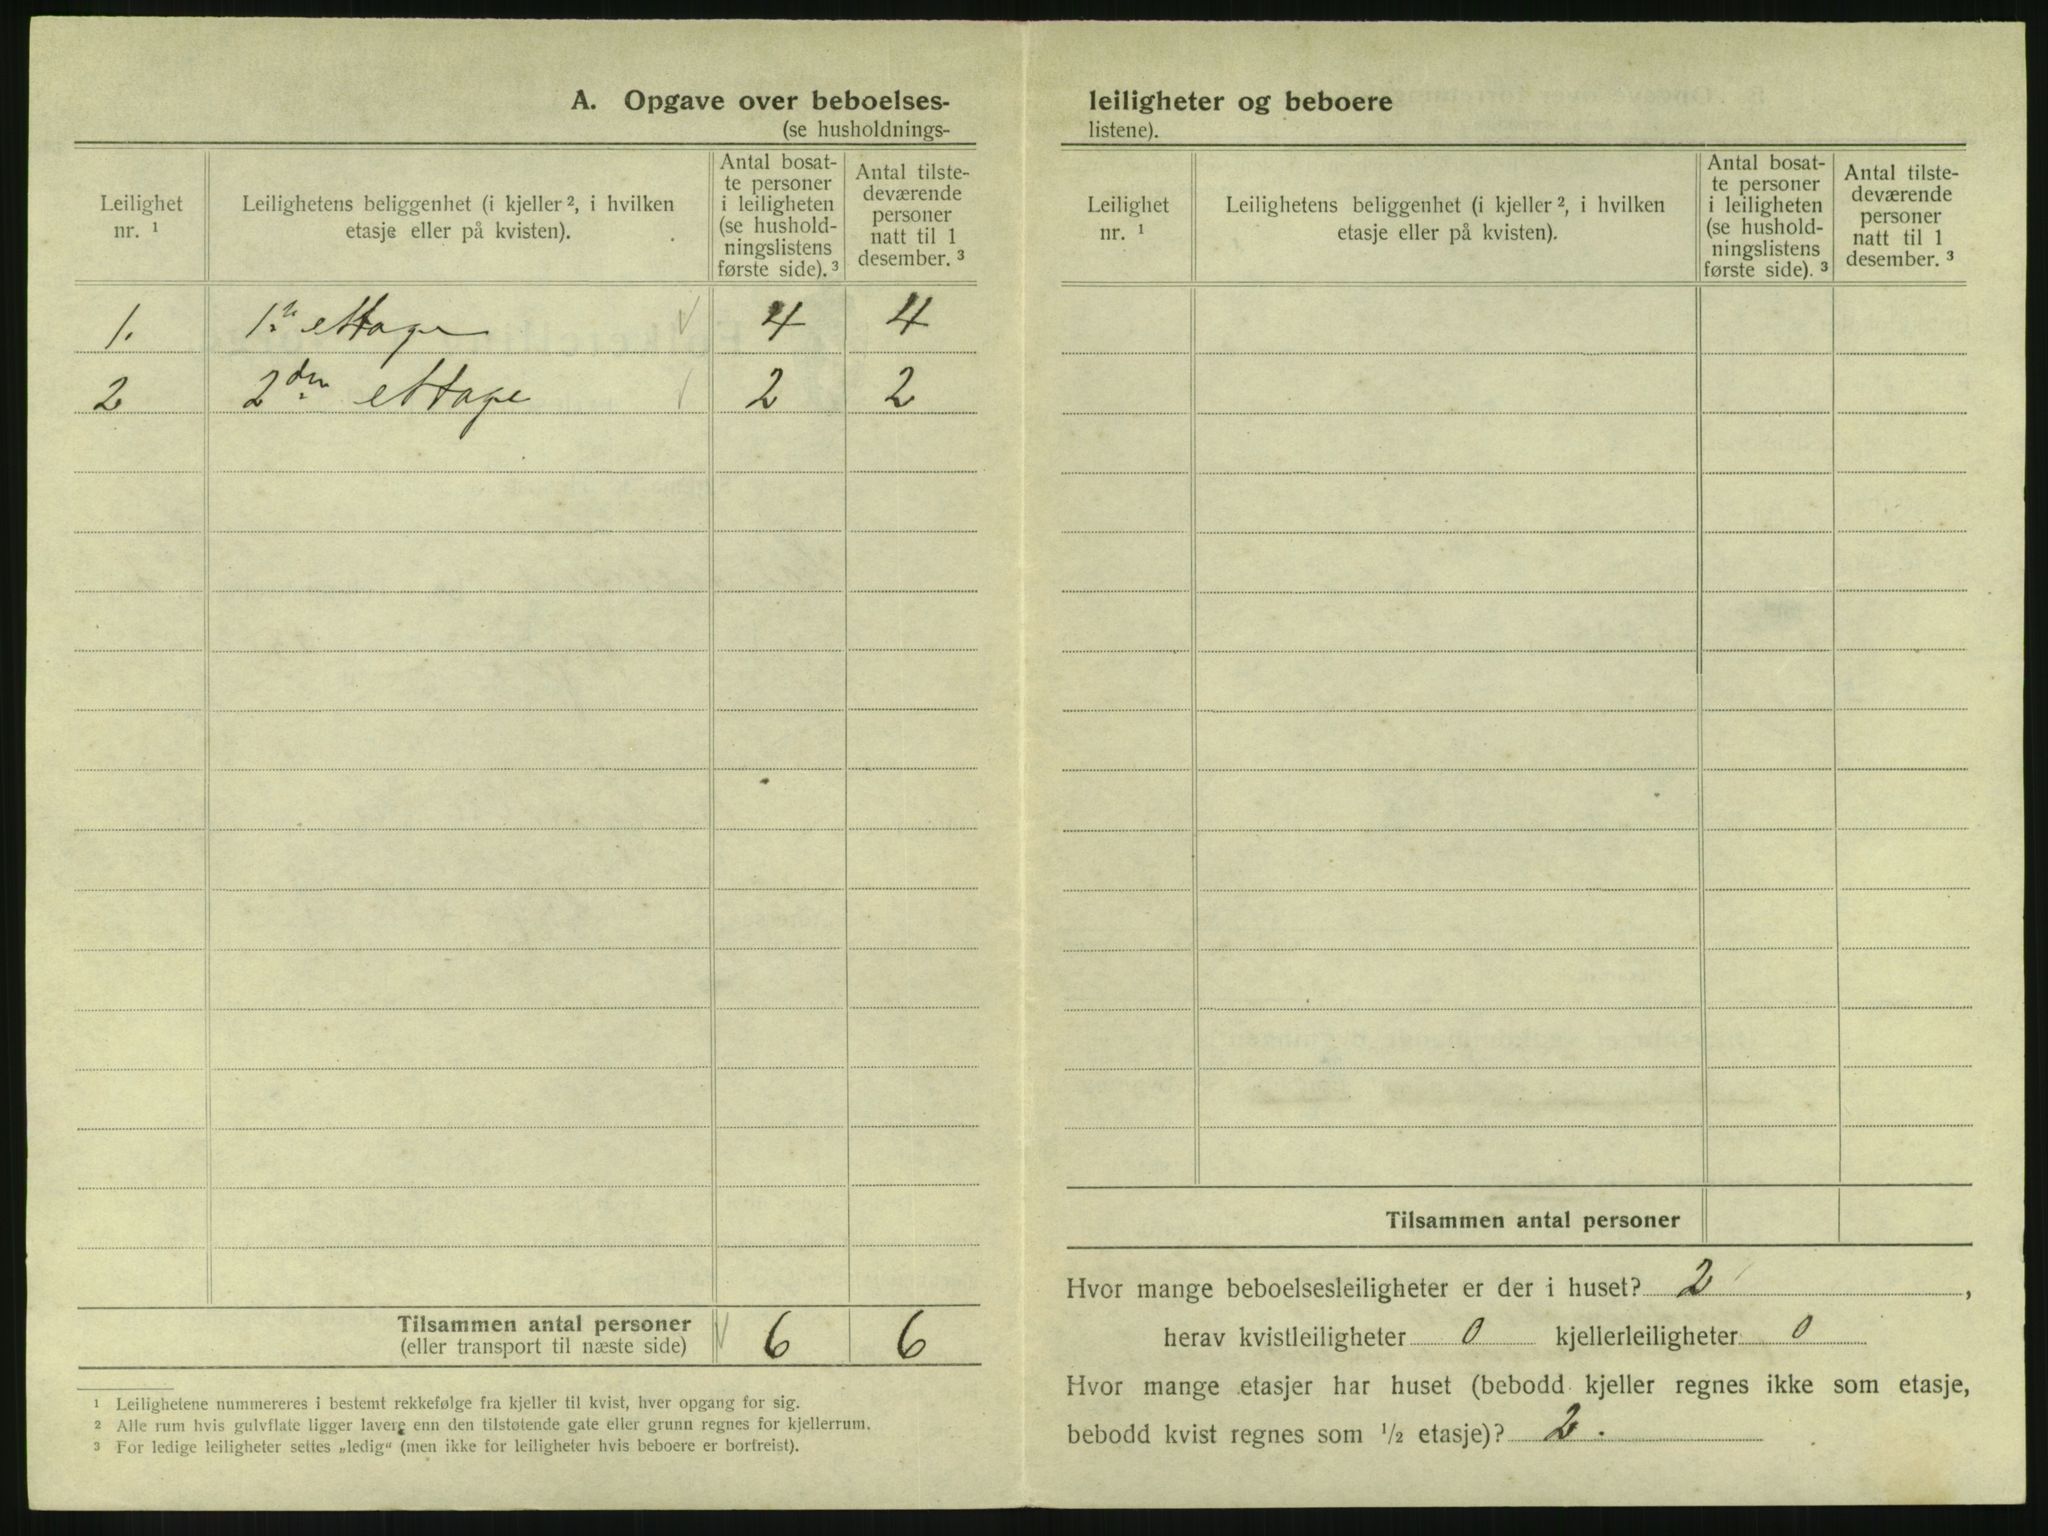 A. Opgave over beboelses-
(se husholdnings-
Leilighet
nr. 1
Leilighetens beliggenhet (i kjeller 2, i hvilken
etasje eller på kvisten).
Antal bosat-
te personer
i leiligheten
(se hushold-
ningslistens
første side). 3
Antal tilste-
deværende
personer
natt til 1
desember. 3
1. 1ste ettage 4 4
2 2den ettage 2 2
Tilsammen antal personer 6 6
(eller transport til næste side)
1 Leilighetene nummereres i bestemt rekkefølge fra kjeller til kvist, hver opgang for sig.
2 Alle rum hvis gulvflate ligger lavere enn den tilstøtende gate eller grunn regnes for kjellerrum.
3 For ledige leiligheter settes „ledig“ (men ikke for leiligheter hvis beboere er bortreist).
leiligheter og beboere
listene).
Leilighet
nr. 1
Leilighetens beliggenhet (i kjeller 2, i hvilken
etasje eller på kvisten).
Antal bosat-
te personer
i leiligheten
(se hushold-
ningslistens
første side). 3
Antal tilste-
deværende
personer
natt til 1
desember. 3
Tilsammen antal personer
Hvor mange beboelsesleiligheter er der i huset? 2,
herav kvistleiligheter 0 kjellerleiligheter 0
Hvor mange etasjer har huset (bebodd kjeller regnes ikke som etasje,
bebodd kvist regnes som 1/2 etasje)? 2.